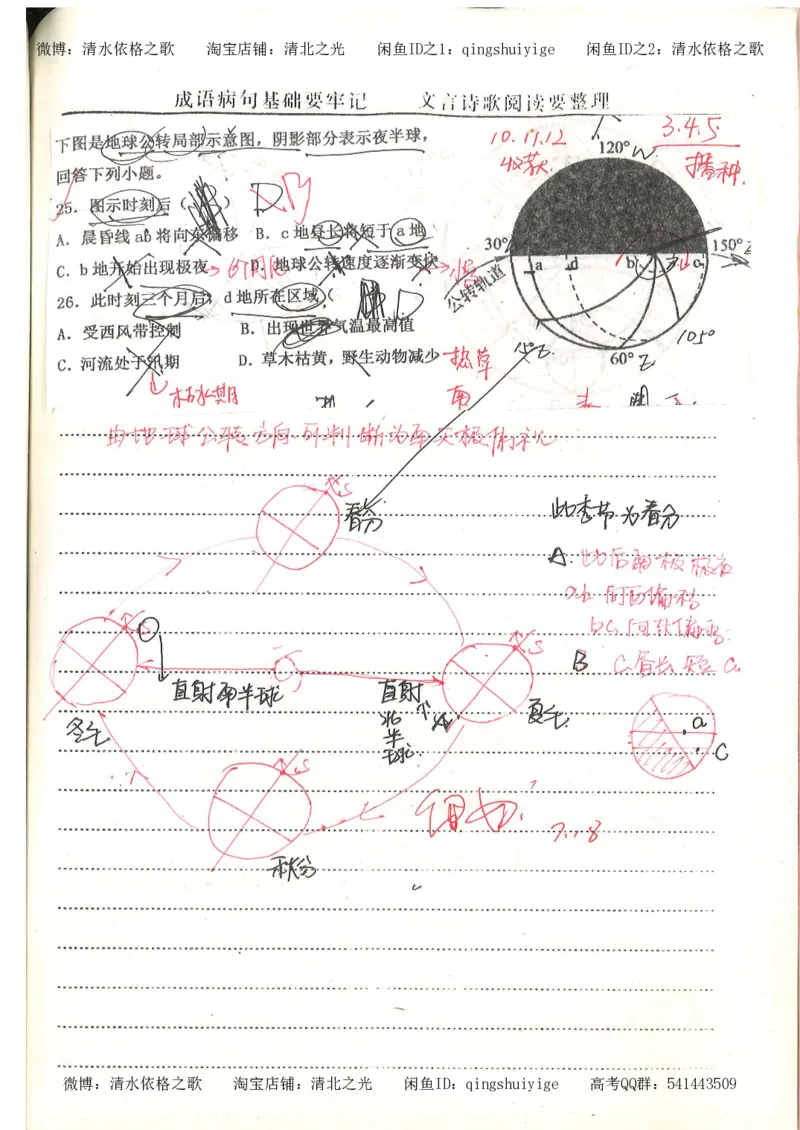 微博：清水依格之歌 淘宝店铺：清北之光 闲鱼ID之1：qingshuiyige 闲鱼ID之2：清水依格之歌
成语病句基础要牢记 文言诗歌阅读要整理
下图是地球公转局部示意图，阴影部分表示夜半球，
回答下列小题。
25．图示时刻后（ ） D
A．晨昏线ab将向东偏移 B．c地昼长将短于a地
C．b地开始出现极夜 D．地球公转速度逐渐变快
26．此时刻三个月后，d地所在区域（ D
A．受西风带控制 B．出现世界气温最高值
C．河流处于汛期 D．草木枯黄，野生动物减少
枯水期
热草
南
10.11.12
收获
3.4.5
播种
120° W
30°
150° E
a d b c
公转轨道
15°E
60° E
105°
由地球公转方向可判断为南天极俯视
S
春分
此季节为春分
A. 此后南极极夜
ab向西偏移
bc向东偏移
B C昼长短a
S
直射南半球
直射北半球
S
夏至
冬至
a
C
S
秋分
7.8
微博：清水依格之歌 淘宝店铺：清北之光 闲鱼ID：qingshuiyige 高考QQ群：541443509